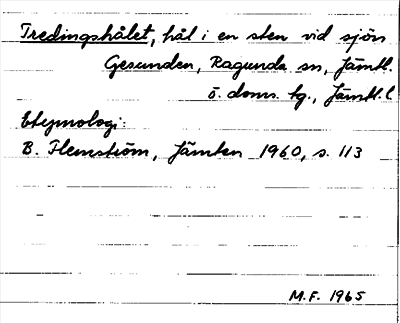 Tredingshålet, hål i en sten vid sjön
Gesunden, Ragunda sn, Jämtl.
ö. doms. tg., Jämtl. l
Etymologi:
B. Flemström, Jämten 1960, s. 113
M.F. 1965